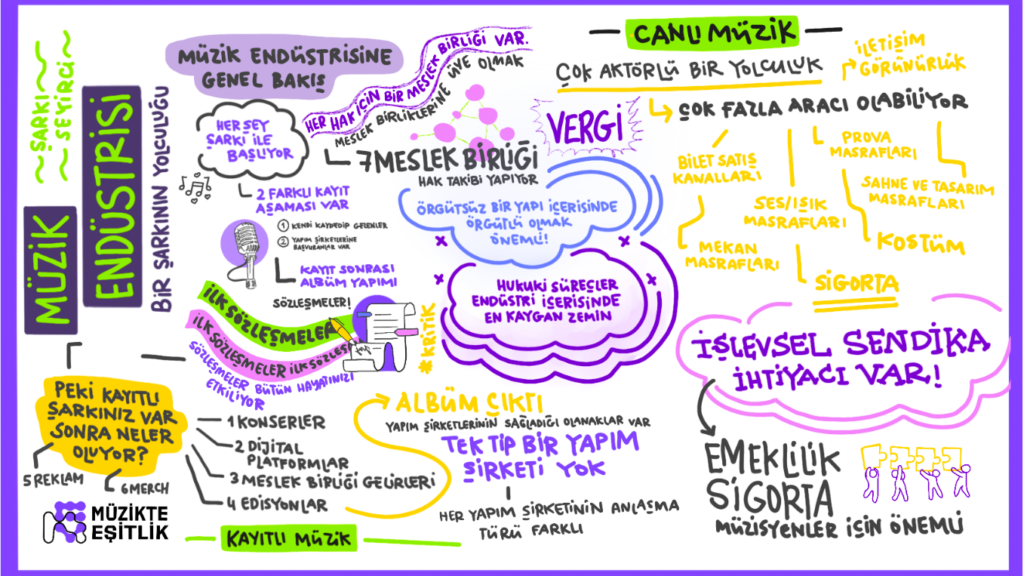 ~ ŞARKI ~
~ SEYİRCİ ~
MÜZİK
ENDÜSTRİSİ
BİR ŞARKININ YOLCULUĞU
MÜZİK ENDÜSTRİSİNE
GENEL BAKIŞ
HER ŞEY
ŞARKI İLE
BAŞLIYOR
2 FARKLI KAYIT
AŞAMASI VAR
1 KENDİ KAYDEDİP GELENLER
2 YAPIM ŞİRKETLERİNE
BAŞVURANLAR VAR
KAYIT SONRASI
ALBÜM YAPIMI
SÖZLEŞMELER!
İLK SÖZLEŞMELER
İLK SÖZLEŞMELER İLK SÖZLEŞ
SÖZLEŞMELER BÜTÜN HAYATINIZI
ETKİLİYOR
*KRİTİK
HER HAK İÇİN BİR MESLEK BİRLİĞİ VAR.
MESLEK BİRLİKLERİNE
ÜYE OLMAK
7 MESLEK BİRLİĞİ
HAK TAKİBİ YAPIYOR
VERGİ
ÖRGÜTSÜZ BİR YAPI İÇERİSİNDE
ÖRGÜTLÜ OLMAK
ÖNEMLİ!
HUKUKİ SÜREŞLER
ENDÜSTRİ İÇERİSİNDE
EN KAYGAN ZEMİN
PEKİ KAYITLI
ŞARKINIZ VAR
SONRA NELER
OLUYOR?
1 KONSERLER
2 DİJİTAL
PLATFORMLAR
3 MESLEK BİRLİĞİ GELİRLERİ
4 EDİSYONLAR
5 REKLAM
6 MERCH
ALBÜM ÇIKTI
YAPIM ŞİRKETLERİNİN SAĞLADIĞI OLANAKLAR VAR
TEK TİP BİR YAPIM
ŞİRKETİ YOK
HER YAPIM ŞİRKETİNİN ANLAŞMA
TÜRÜ FARKLI
KAYITLI MÜZİK
MÜZİKTE
EŞİTLİK
CANLI MÜZİK
ÇOK AKTÖRLÜ BİR YOLCULUK
İLETİŞİM
GÖRÜNÜRLÜK
ÇOK FAZLA ARACI OLABİLİYOR
BİLET SATIŞ
KANALLARI
MEKAN
MASRAFLARI
SES/IŞIK
MASRAFLARI
PROVA
MASRAFLARI
SAHNE VE TASARIM
MASRAFLARI
KOSTÜM
SİGORTA
İŞLEVSEL SENDİKA
İHTİYACI VAR!
EMEKLİLİK
SİGORTA
MÜZİSYENLER İÇİN ÖNEMLİ